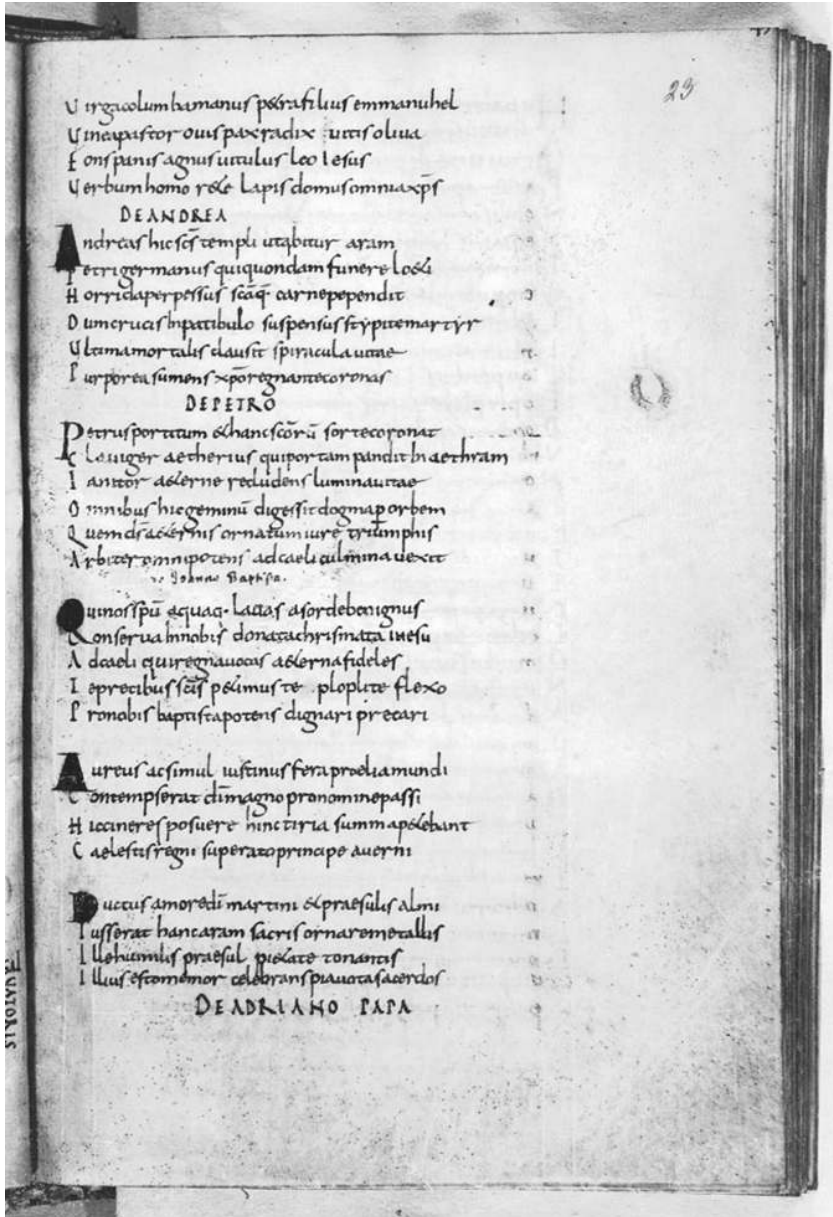 23
Uirgacolumbamanus petrafilius emmanuhel
Uineapastor ouis pax radix uitis oliua
Fons panis agnus uitulus leo Iesus
Uerbum homo rete lapis domus omnia xp̄s
DE ANDREA
Andreas hic sc̄s templi utabitur aram
Petri germanus qui quondam funere loeti
Horrida perpessus sc̄aq; carne pependit
Dum crucis in patibulo suspensus stypite martyr
Ultima mortalis clausit spiracula uitae
Purporea sumens xp̄o regnante coronas
DE PETRO
Petrus portitum & hanc sc̄orū sorte coronat
Clauiger aetherius qui portam pandit in aethram
Ianitor aeterne recludens lumina uitae
Omnibus hic geminū digessit dogma p orbem
Quem d̄s aeternis ornatum iure triumphis
Arbiter omnipotens ad caeli culmina uexit
Joannes Baptista.
Qui nos spū aquaq; lauas a sorde benignus
Conserua in nobis donata chrismata iniesu
Ad caeli qui regna uocas aeterna fideles
Te precibus sc̄is petimus te ploplite flexo
Pro nobis baptista potens dignari precari
Aureus ac simul iustinus fera proelia mundi
Contempserat dn̄i magno pro nomine passi
Hic cineres posuere hinc tiria summa petebant
Caelestis regni superato principe auerni
Ductus amore dī martini & praesulis almi
Iusserat hanc aram sacris ornare metallis
Ille humilis praesul pietate tonantis
Illius esto memor celebrans pia uota sacerdos
DE ADRIANO PAPA